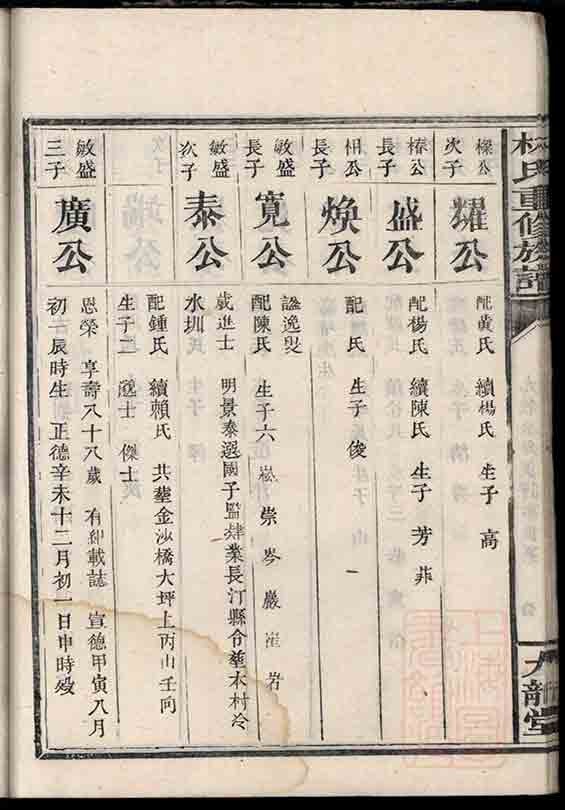 林氏重修族譜
九龍堂
樑公
次子
耀公
配黃氏 續楊氏 生子 高
椿公
長子
盛公
配楊氏 續陳氏 生子 芳 菲
長子
煥公
配 氏 生子 俊
敏盛
長子
寬公
謚逸叟
配陳氏 生子六 崧 崇 岑 巖 崔 岩
敏盛
次子
泰公
歲進士 明景泰選國子監肄業長汀縣令塟本村冷
水圳
敏盛
三子
廣公
配鍾氏 續賴氏 共塟金沙橋大坪上丙山壬向
生子二 冠士 傑士
恩榮 享壽八十八歲 有 載誌 宣德甲寅八月
初一辰時生 正德辛未十二月初一日申時歿